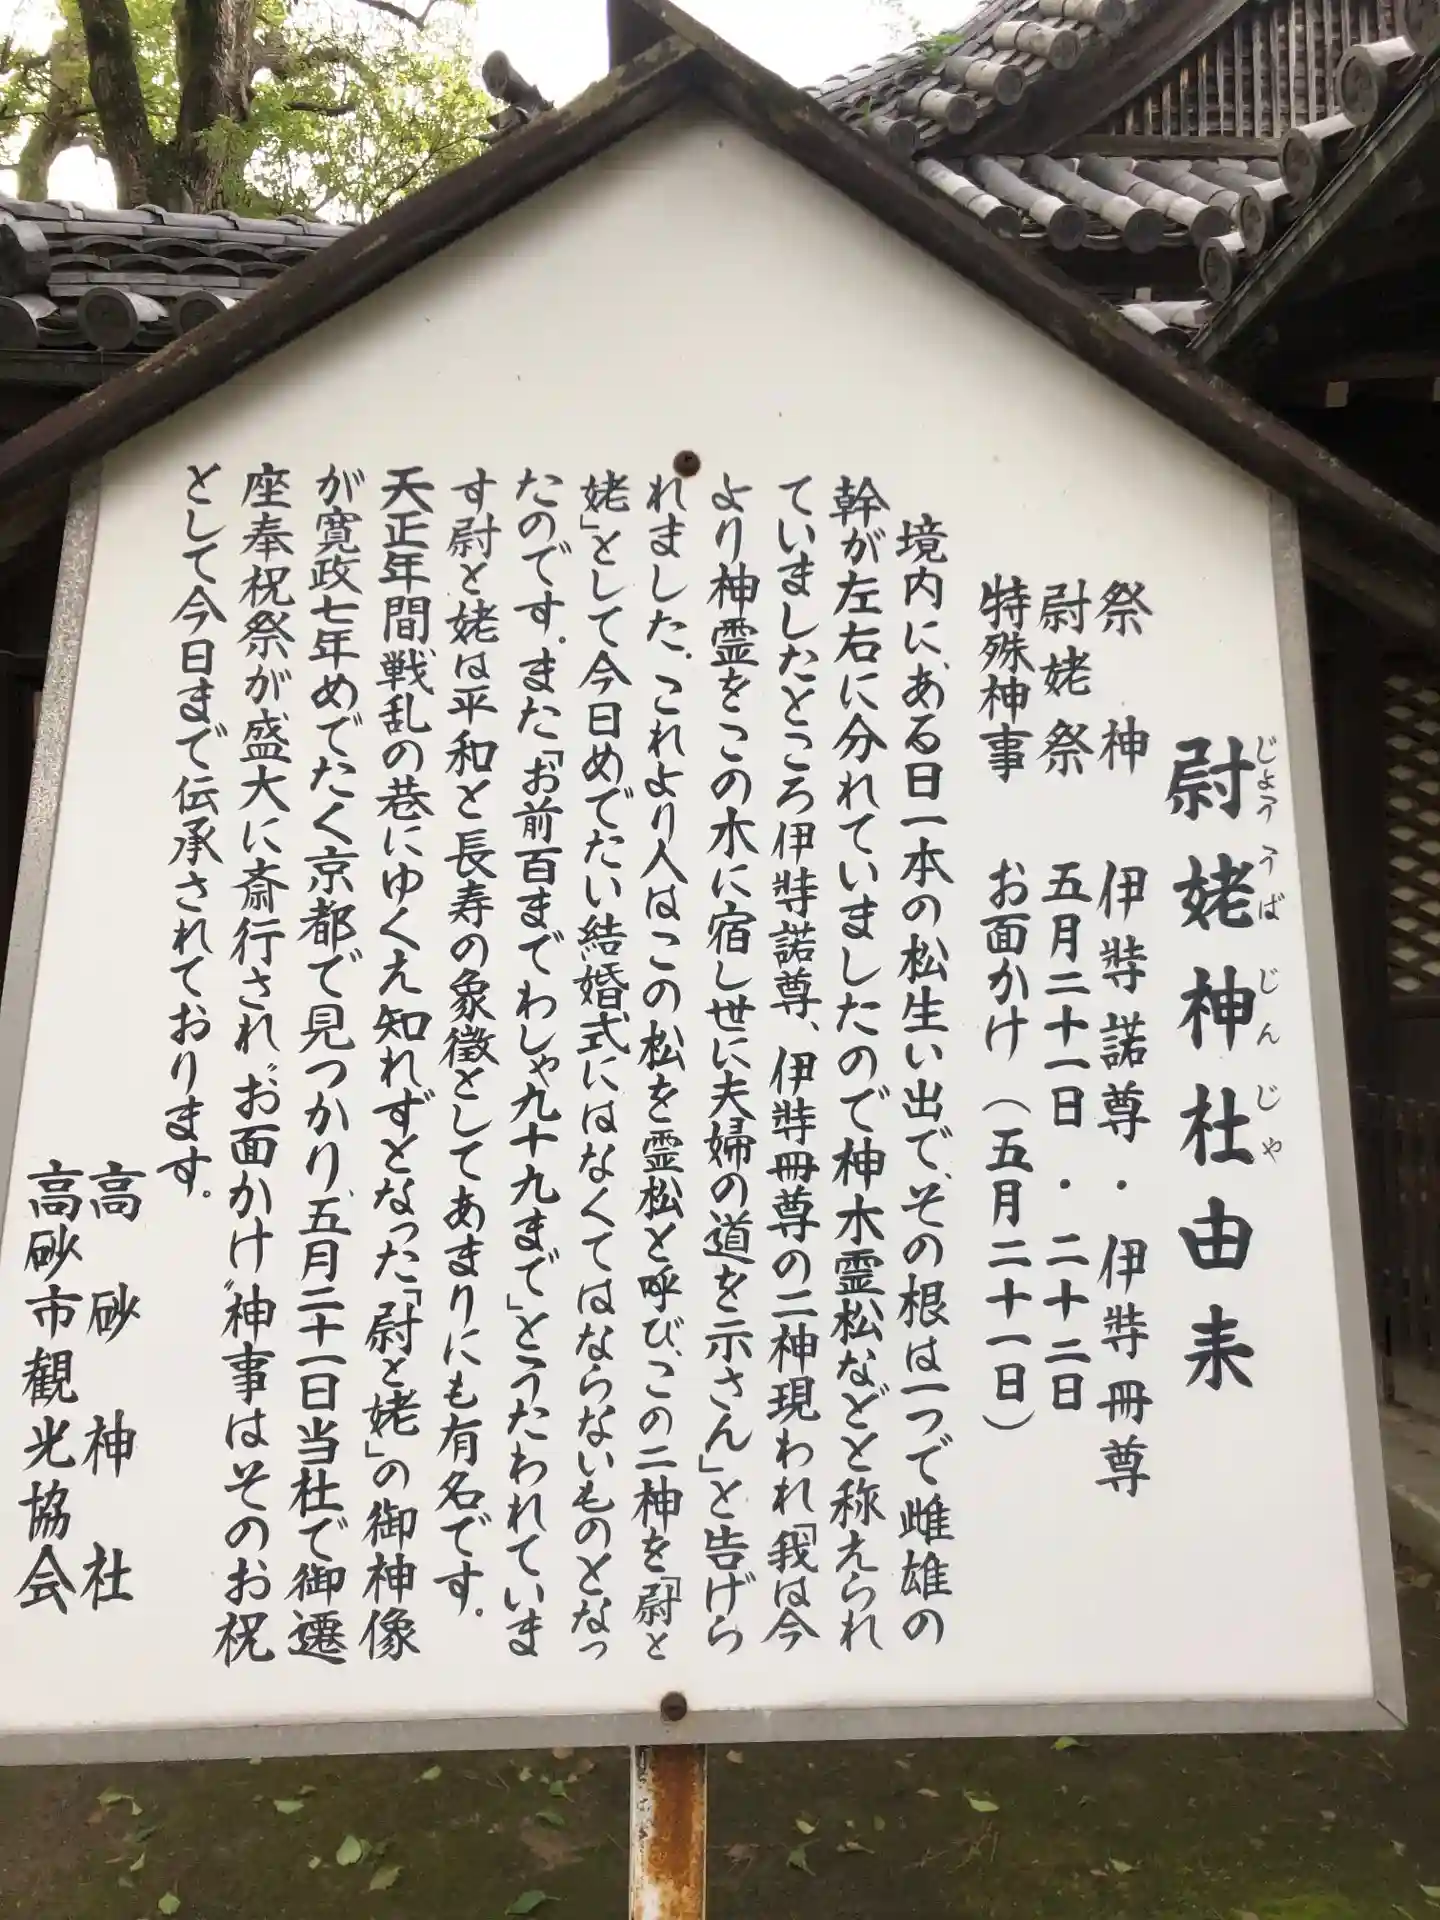 尉姥神社由来
じょう うば じん じゃ
祭神 伊弉諾尊・伊弉冊尊
尉姥祭 五月二十一日・二十二日
特殊神事 お面かけ(五月二十一日)
境内に、ある日一本の松生い出で、その根は一つで雌雄の
幹が左右に分れていましたので神木霊松などと称えられ
ていましたところ伊弉諾尊、伊弉冊尊の二神現われ「我は今
より神霊をこの木に宿し世に夫婦の道を示さん」と告げら
れました。これより人はこの松を霊松と呼び、この二神を「尉と
姥」として今日めでたい結婚式にはなくてはならないものとなっ
たのです。また「お前百までわしゃ九十九まで」とうたわれていま
す尉と姥は平和と長寿の象徴としてあまりにも有名です。
天正年間、戦乱の巷にゆくえ知れずとなった「尉と姥」の御神像
が寛政七年めでたく京都で見つかり、五月二十一日当社で御遷
座奉祝祭が盛大に斎行され〝お面かけ〟神事はそのお祝
として今日まで伝承されております。
高砂神社
高砂市観光協会